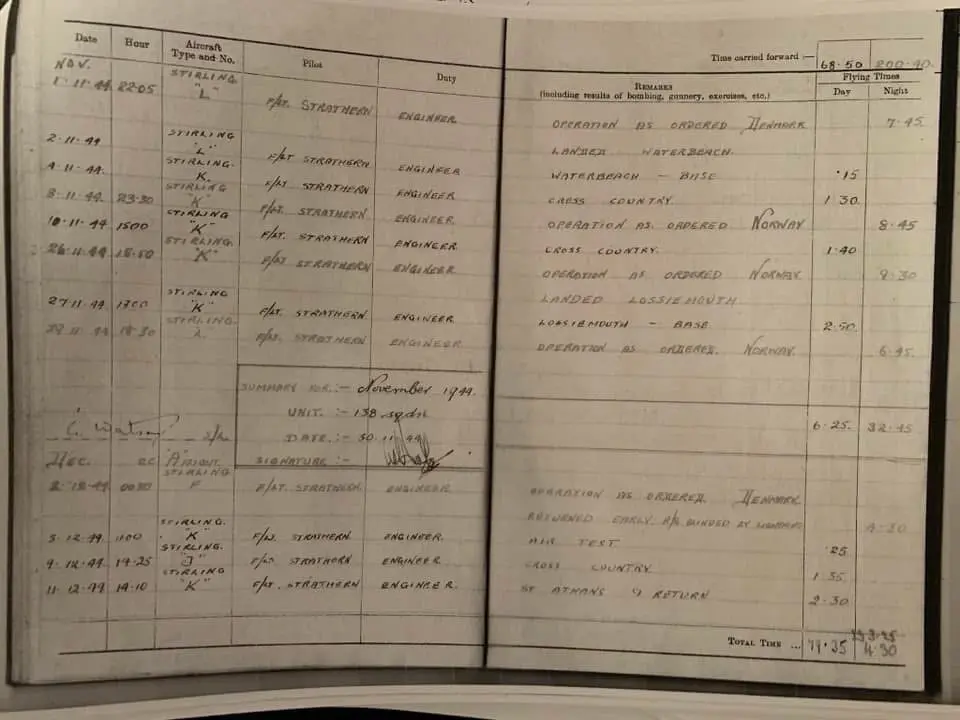 Date Hour Aircraft Type and No. Pilot Duty
Time carried forward :— 68.50 200.40
REMARKS (including results of bombing, gunnery, exercises, etc.) Flying Times Day Night
NOV.
1.11.44 22.05 STIRLING "L" F/LT. STRATHERN ENGINEER OPERATION AS ORDERED DENMARK 7.45
LANDED WATERBEACH.
2.11.44 STIRLING "L" F/LT STRATHERN ENGINEER WATERBEACH — BASE .15
4.11.44. STIRLING. K. F/LT STRATHERN ENGINEER CROSS COUNTRY. 1.30
8.11.44 23.30 STIRLING "K" F/LT. STRATHERN ENGINEER OPERATION AS ORDERED NORWAY 8.45
10.11.44 1500 STIRLING "K" F/LT. STRATHERN ENGINEER CROSS COUNTRY. 1.40
26.11.44 STIRLING. "K" F/LT STRATHERN ENGINEER OPERATION AS ORDERED NORWAY.
LANDED LOSSIEMOUTH
27.11.44 1300 STIRLING "K" F/LT. STRATHERN ENGINEER LOSSIEMOUTH — BASE 2.50
STIRLING. F/LT. STRATHERN ENGINEER OPERATION AS ORDERED. NORWAY. 6.45.
SUMMARY FOR :— November 1944.
UNIT. :— 138 sqdn
6.25. 32.45
C. Watson S/Ldr
DATE. :— 30.11.44
SIGNATURE :—
Dec.
2.12.44 STIRLING F F/LT. STRATHERN ENGINEER OPERATION AS ORDERED. DENMARK
RETURNED EARLY. 4.30
3.12.44 1100 STIRLING. "K" F/LT. STRATHERN. ENGINEER. AIR TEST .25
9.12.44 14.25 STIRLING. "J" F/LT STRATHERN ENGINEER CROSS COUNTRY 1.35
11.12.44 14.10 STIRLING "K" F/LT. STRATHERN ENGINEER. ST ATHANS & RETURN 2.30
TOTAL TIME ... 79.35 4.30